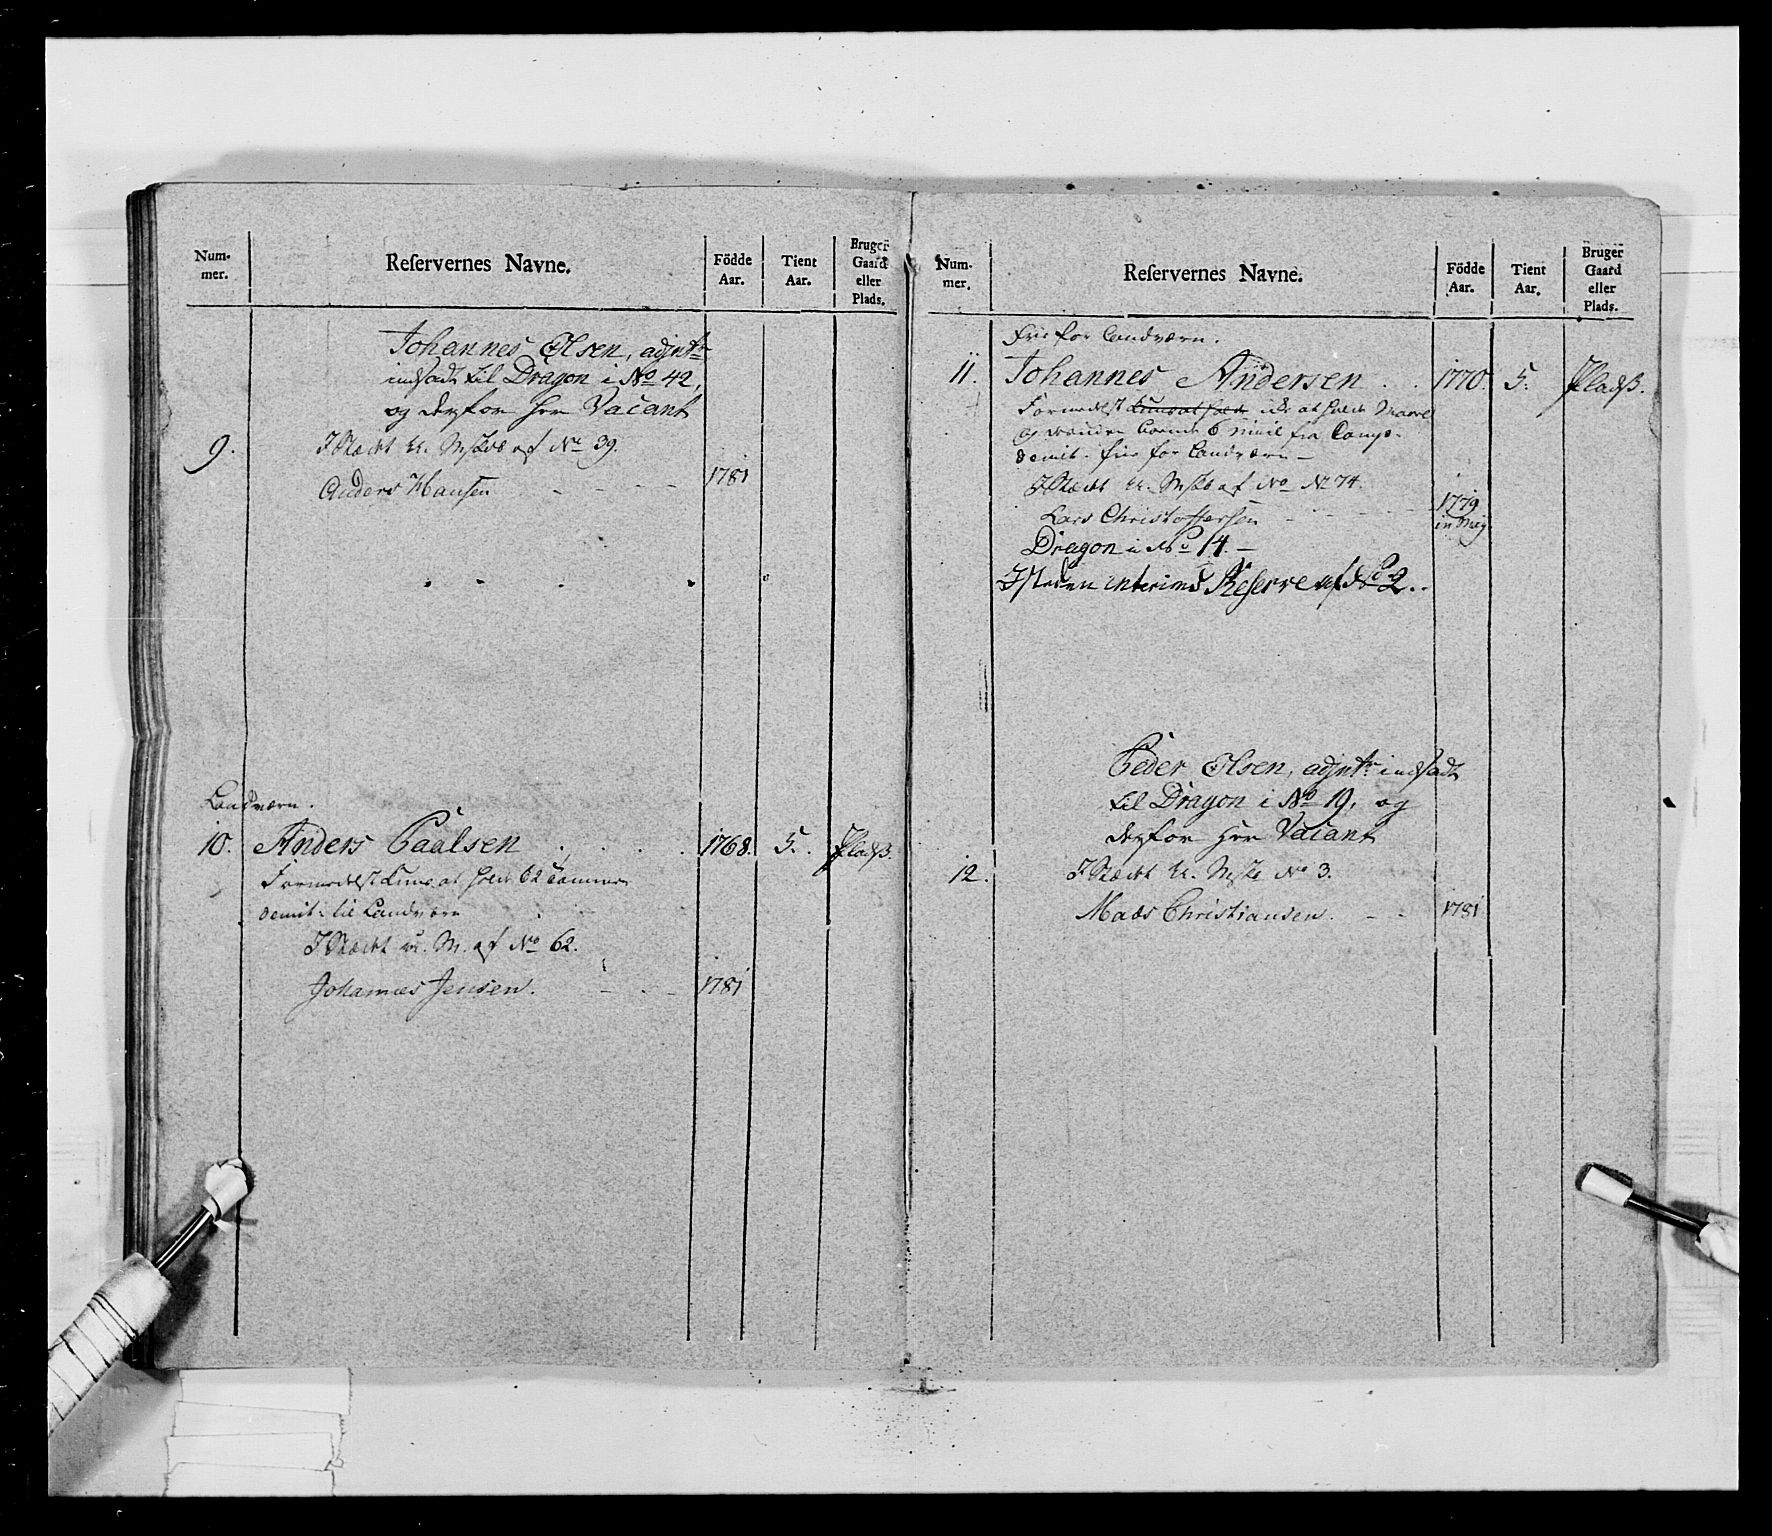 Num-
mer.
Reservernes Navne.
Födde
Aar.
Tient
Aar.
Bruger
Gaard
eller
Plads.
Johannes Olsen, adjntr
indsadt til Dragon i No 42,
og derfor her Vacant
9.
af No 39.
Anders Hansen 1781
Landværn.
10. Anders Paalsen 1768. 5. Pladß.
Formedelst
demit: til Landværn
af No 62.
Johannes Jensen. 1781
Num-
mer.
Reservernes Navne.
Födde
Aar.
Tient
Aar.
Bruger
Gaard
eller
Plads.
Fri for Landværn.
11. Johannes Andersen 1770. 5. Pladß.
Formedelst
6 Miil fra Comp.
demit. frie for Landværn
af No 74.
Lars Christoffersen 1779
in Maj
Dragon i No 14.
Isteden interims Reserve af No 2.
Peder Olsen, adjntr indsadt
til Dragon i No 19, og
derfor her Vacant
12. No 3.
Mads Christiansen. 1781